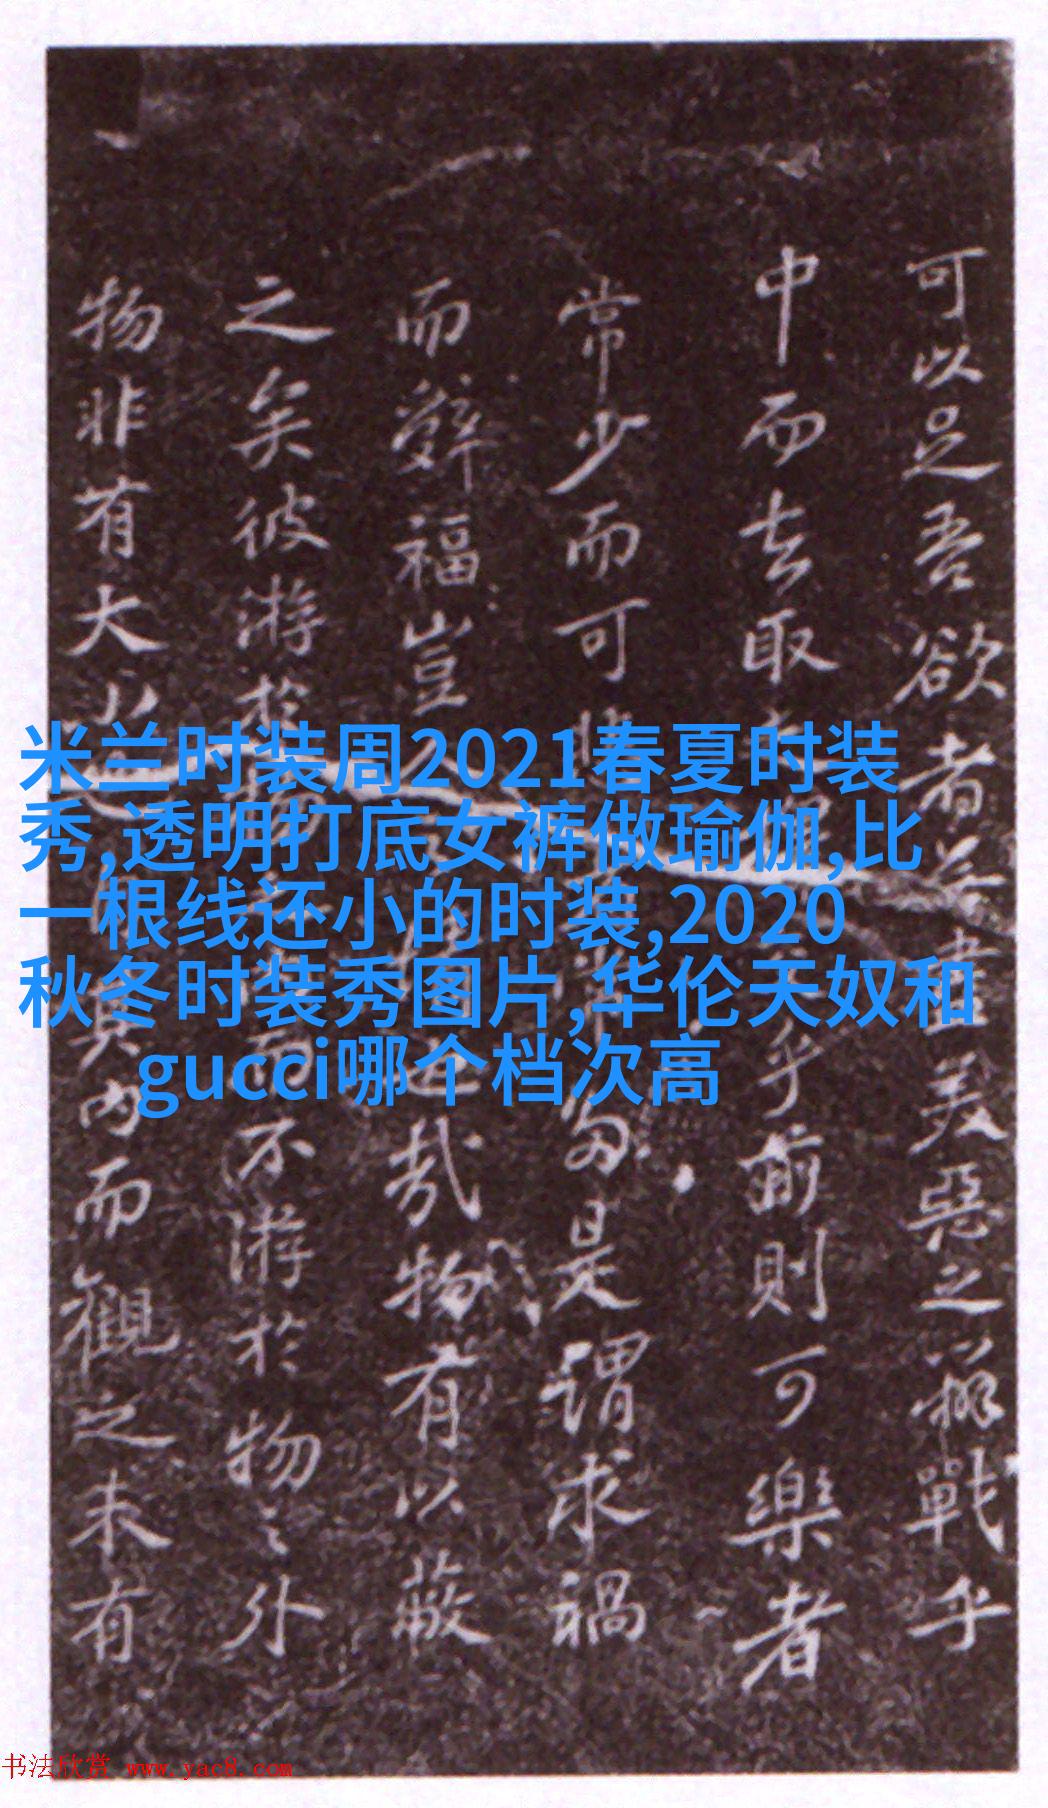 可以足吾欲者盡美惡之辨戰乎
中而去取乎前則可樂者
常少而可悲多是謂求禍
而辭福豈哉物有以蔽
之矣彼游於而不游於物之外
物非有大小其內而觀之未有
米兰时装周2021春夏时装
秀,透明打底女裤做瑜伽,比
一根线还小的时装,2020
秋冬时装秀图片,华伦天奴和
gucci哪个档次高
书法欣赏 www.yac8.com